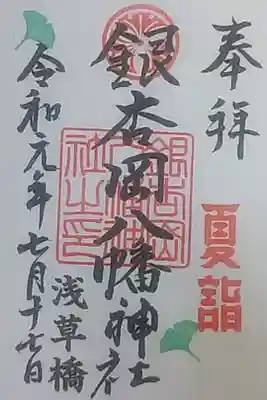 奉拝
夏詣
銀杏岡八幡神社
浅草橋
令和元年七月十七日